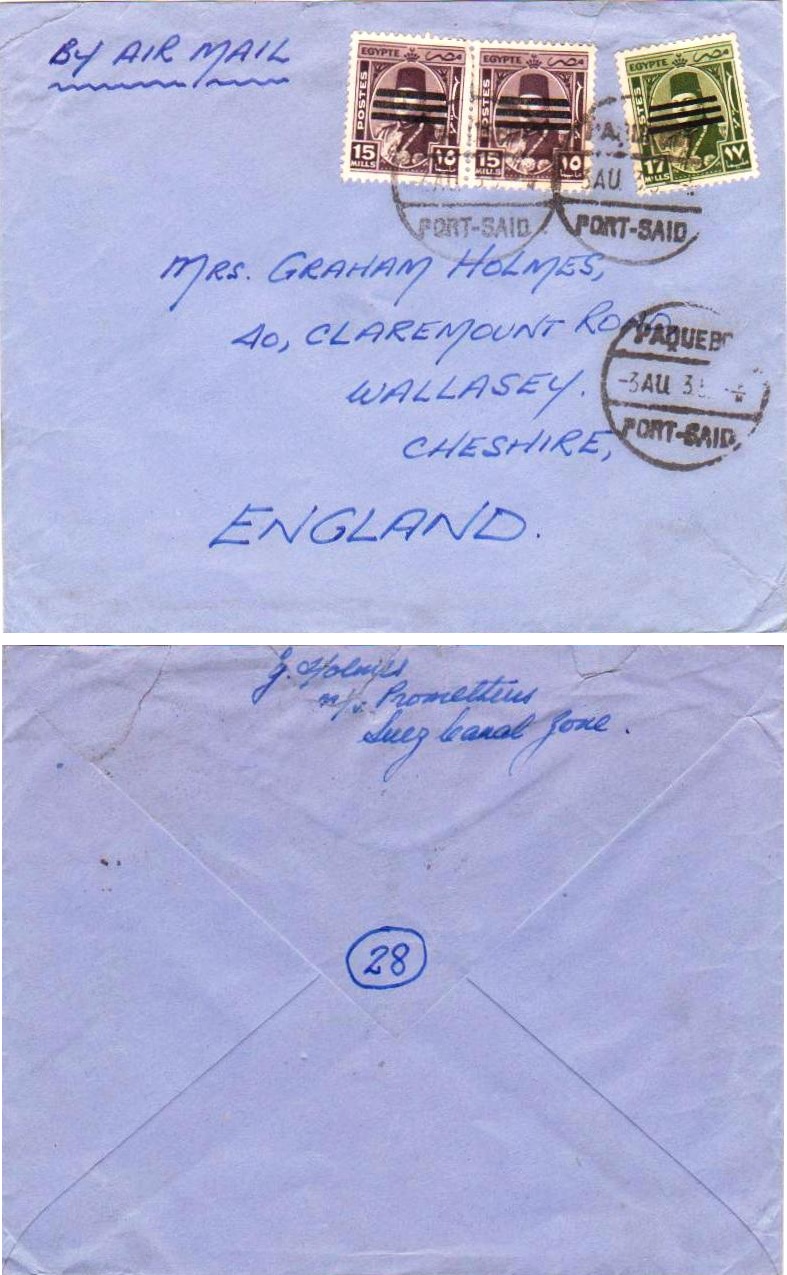 BY AIR MAIL
EGYPTE مصر
POSTES
15 MILLS ١٥
EGYPTE مصر
POSTES
15 MILLS ١٥
EGYPTE مصر
POSTES
17 MILLS ١٧
AU
PORT-SAID
3AU
PORT-SAID
MRS. GRAHAM HOLMES,
40, CLAREMOUNT ROAD
WALLASEY.
CHESHIRE,
ENGLAND.
PAQUEB
-3AU
PORT-SAID
G. Holmes
m/v. Prometheus
Suez Canal Zone.
28